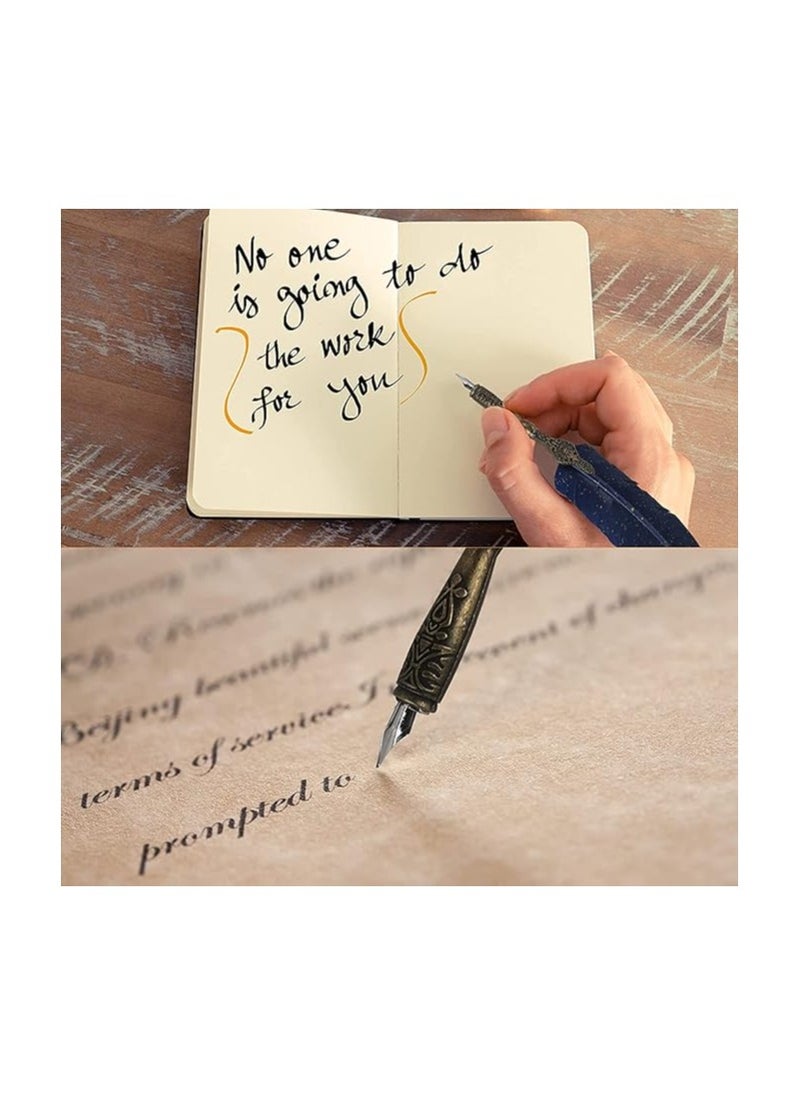 No one
is going to do
the work
for you
Beijing beautiful
terms of service. of
prompted to